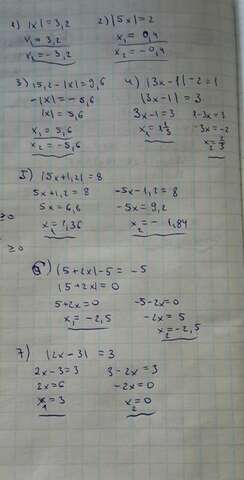 1) |x| = 3,2 2) |5x| = 2
x₁ = 3,2 x₁ = 0,4
x₂ = -3,2 x₂ = -0,4
3) 15,2 - |x| = 9,6 4) |3x - 1| - 2 = 1
-|x| = -5,6 |3x - 1| = 3
|x| = 5,6 3x - 1 = 3 1 - 3x = 3
x₁ = 5,6 x₁ = 1 1/3 -3x = 2
x₂ = -5,6 x₂ = 2/3
5) |5x + 1,2| = 8
5x + 1,2 = 8 -5x - 1,2 = 8
5x = 6,8 -5x = 9,2
≥0 x₁ = 1,36 x₂ = -1,84
≥0
6) |5 + 2x| - 5 = -5
|5 + 2x| = 0
5 + 2x = 0 -5 - 2x = 0
x₁ = -2,5 -2x = 5
x₂ = -2,5
7) |2x - 3| = 3
2x - 3 = 3 3 - 2x = 3
2x = 6 -2x = 0
x₁ = 3 x₂ = 0